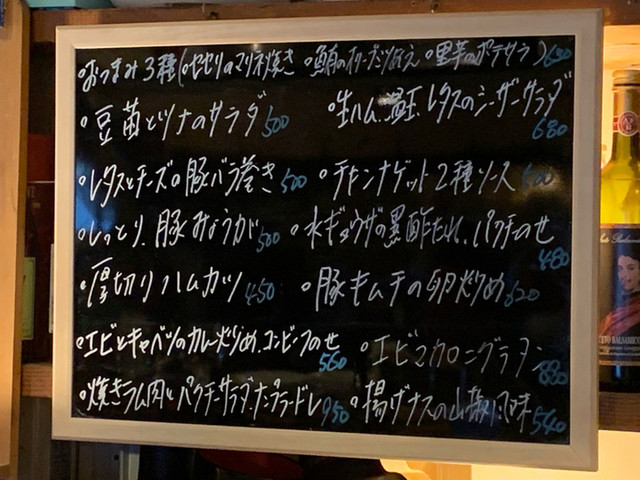 ・おつまみ3種(・セセリのマリネ焼き ・鮪のオリーブ和え ・里芋のポテサラ)680
・豆苗とツナのサラダ500
・生ハム、温玉、レタスのシーザーサラダ680
・レタスとチーズの豚バラ巻き500
・チキンナゲット2種ソース500
・しっとり、豚みょうが500
・水ギョウザの黒酢だれ、パクチーのせ480
・厚切りハムカツ450
・豚キムチの卵炒め620
・エビとキャベツのカレー炒め、コンビーフのせ560
・エビマカロニグラタン880
・焼きラム肉とパクチーサラダ、ナンプラードレ950
・揚げナスの山椒風味540